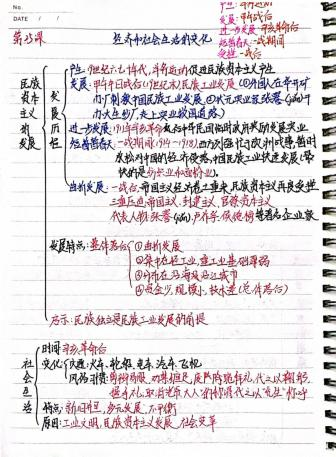 No.
DATE / /
产生：甲午战前
发展：甲午战后
进一步发展：辛亥革命后
短暂春天：一战期间
受挫：一战后
第25课 经济和社会生活的变化
民族资本主义的发展
发展历程
产生：19世纪六七十年代，洋务运动促进民族资本主义产生
发展：甲午中日战后（19世纪末）民族工业发展
进一步发展：1911年辛亥革命后，中华民国临时政府奖励发展实业
短暂春天：一战期间（1914-1918）西方列强忙于欧洲战事，暂时
放松对中国的经济侵略，中国民族工业快速发展
曲折发展：一战后，帝国主义经济卷土重来，民族资本主义再度受挫
三重压迫：帝国主义、封建主义、官僚资本主义
代表人物：张謇(jiǎn)、卢作孚、侯德榜等著名企业家
发展特点：总体落后
①曲折发展
②集中在轻工业，重工业基础薄弱
③分布在沿海及沿江城市
④资金少，规模小，技术差（总体落后）
启示：民族独立是民族工业发展的前提
社会生活
时间：辛亥革命后
变化
交通：火车、轮船、电车、汽车、飞机
风俗习惯：剪辫易服，劝禁缠足，废除跪拜礼，代之以鞠躬、
握手礼，取消"老爷""大人"的称谓，代之以"先生"称呼
特点：新旧并呈、多元发展、不平衡
原因：工业文明，民族资本主义发展，社会变革